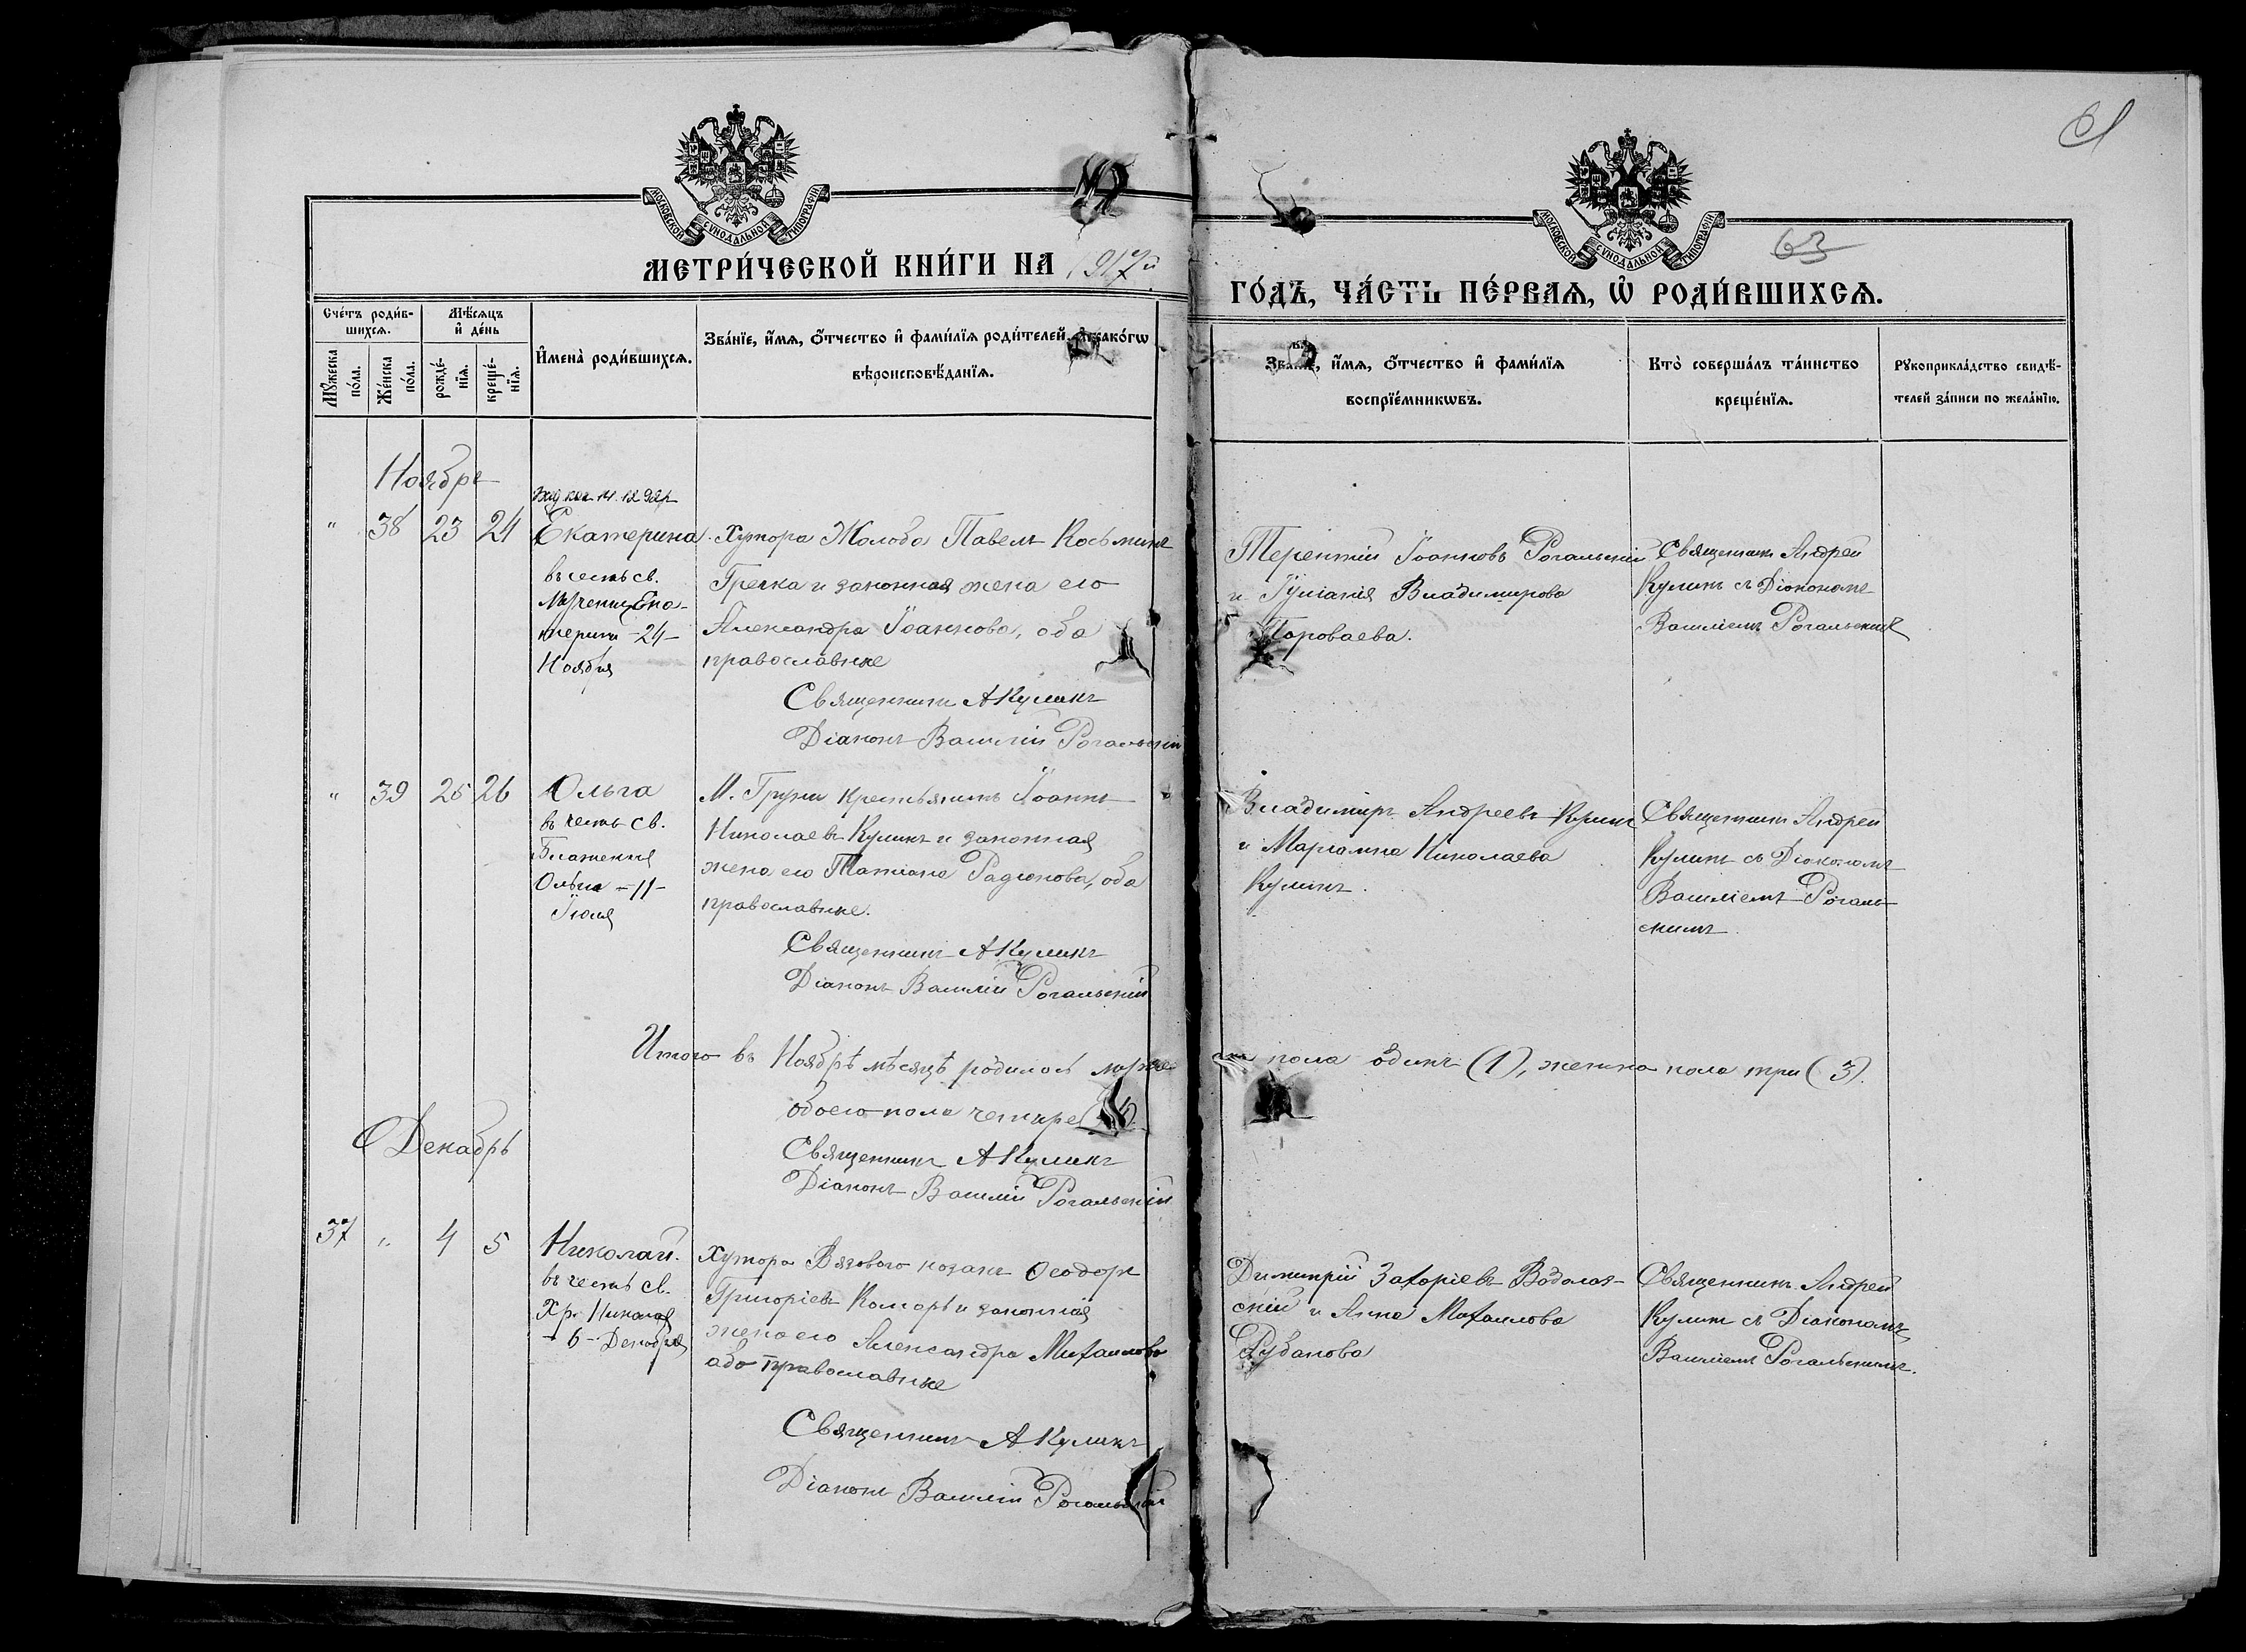 61
63
МОСКОВСКОЙ СѴНОДАЛЬНОЙ ТИПОГРАФІИ
МОСКОВСКОЙ СѴНОДАЛЬНОЙ ТИПОГРАФІИ
МЕТРИ́ЧЕСКОЙ КНИ́ГИ НА 1917й
ГО́ДЪ, ЧА́СТЬ ПЕ́РВАѦ, Ѡ҆ РОДИ́ВШИХСѦ.
Сче́тъ роди́в-
шихсѧ.
Мѣ́сѧцъ
и҆ де́нь
Мꙋ́жеска
по́ла.
Же́нска
по́ла.
рожде́-
нїѧ.
креще́-
нїѧ.
И҆мена̀ роди́вшихсѧ.
Зва́нїе, и҆́мѧ, ѻ҆́тчество и҆ фами́лїѧ роди́телей, и҆ како́гѡ
вѣроисповѣ́данїѧ.
Зва́нїе, и҆́мѧ, ѻ҆́тчество и҆ фами́лїѧ
воспрїе́мникѡвъ.
Кто̀ соверша́лъ та́инство
креще́нїѧ.
Рꙋкоприкла́дство свидѣ́-
телей за́писи по жела́нїю.
Ноябрь
" 38 23 24 Екатерина
въ честь св.
Мученицы Ека-
терины - 24 -
Ноября
Хутора Жолоба Павелъ Косьминъ
Гречка и законная жена его
Александра Іоаннова, оба
православные
Священникъ А Куликъ
Діаконъ Василій Рогальскій
Терентій Іоанновъ Рогальскій
и Іуліанія Владимирова
Священникъ Андрей
Куликъ съ Діакономъ
Василіемъ Рогальскимъ
" 39 25 26 Ольга
въ честь св.
Блаженныя
Ольги - 11 -
Іюля
М. Груни крестьянинъ Іоаннъ
Николаевъ Куликъ и законная
жена его Татіана Радіонова, оба
православные.
Священникъ А Куликъ
Діаконъ Василій Рогальскій
Владимиръ Андреевъ Куликъ
и Маріамна Николаева
Куликъ.
Священникъ Андрей
Куликъ съ Діакономъ
Василіемъ Рогаль-
скимъ
Итого въ Ноябрѣ мѣсяцѣ родилось муже-
ска пола одинъ (1), женска пола три (3).
обоего пола четыре (4).
Священникъ А Куликъ
Діаконъ Василій Рогальскій
Декабрь
37 " 4 5 Николай.
въ честь св.
Хр. Николая
- 6 - Декабря
Хутора Вязового козакъ Ѳеодоръ
Григоріевъ Комаръ и законная
жена его Александра Михаилова
оба православные
Священникъ А Куликъ
Діаконъ Василій Рогальскій
Димитрій Захаріевъ Водолаз-
скій и Анна Михаилова
Рубанова
Священникъ Андрей
Куликъ съ Діакономъ
Василіемъ Рогальскимъ.